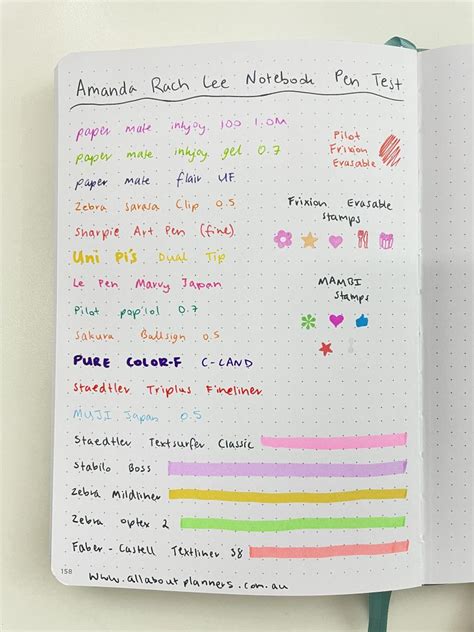 Amanda Rach Lee Notebook Pen Test
paper mate inkjoy 100 1.0M
paper mate inkjoy gel 0.7
paper mate flair UF
Zebra Sarasa Clip 0.5
Sharpie Art Pen (fine)
Uni Pi's Dual Tip
Le Pen Marvy Japan
Pilot pop'lol 0.7
Sakura Ballsign 0.5
PURE COLOR-F C-LAND
Staedtler Triplus Fineliner
MUJI Japan 0.5
Staedtler Textsurfer Classic
Stabilo Boss
Zebra Mildliner
Zebra optex 2
Faber-Castell Textliner 38
Pilot
Frixion
Erasable
Frixion Erasable
Stamps
MAMBI
Stamps
158
www.allaboutplanners.com.au